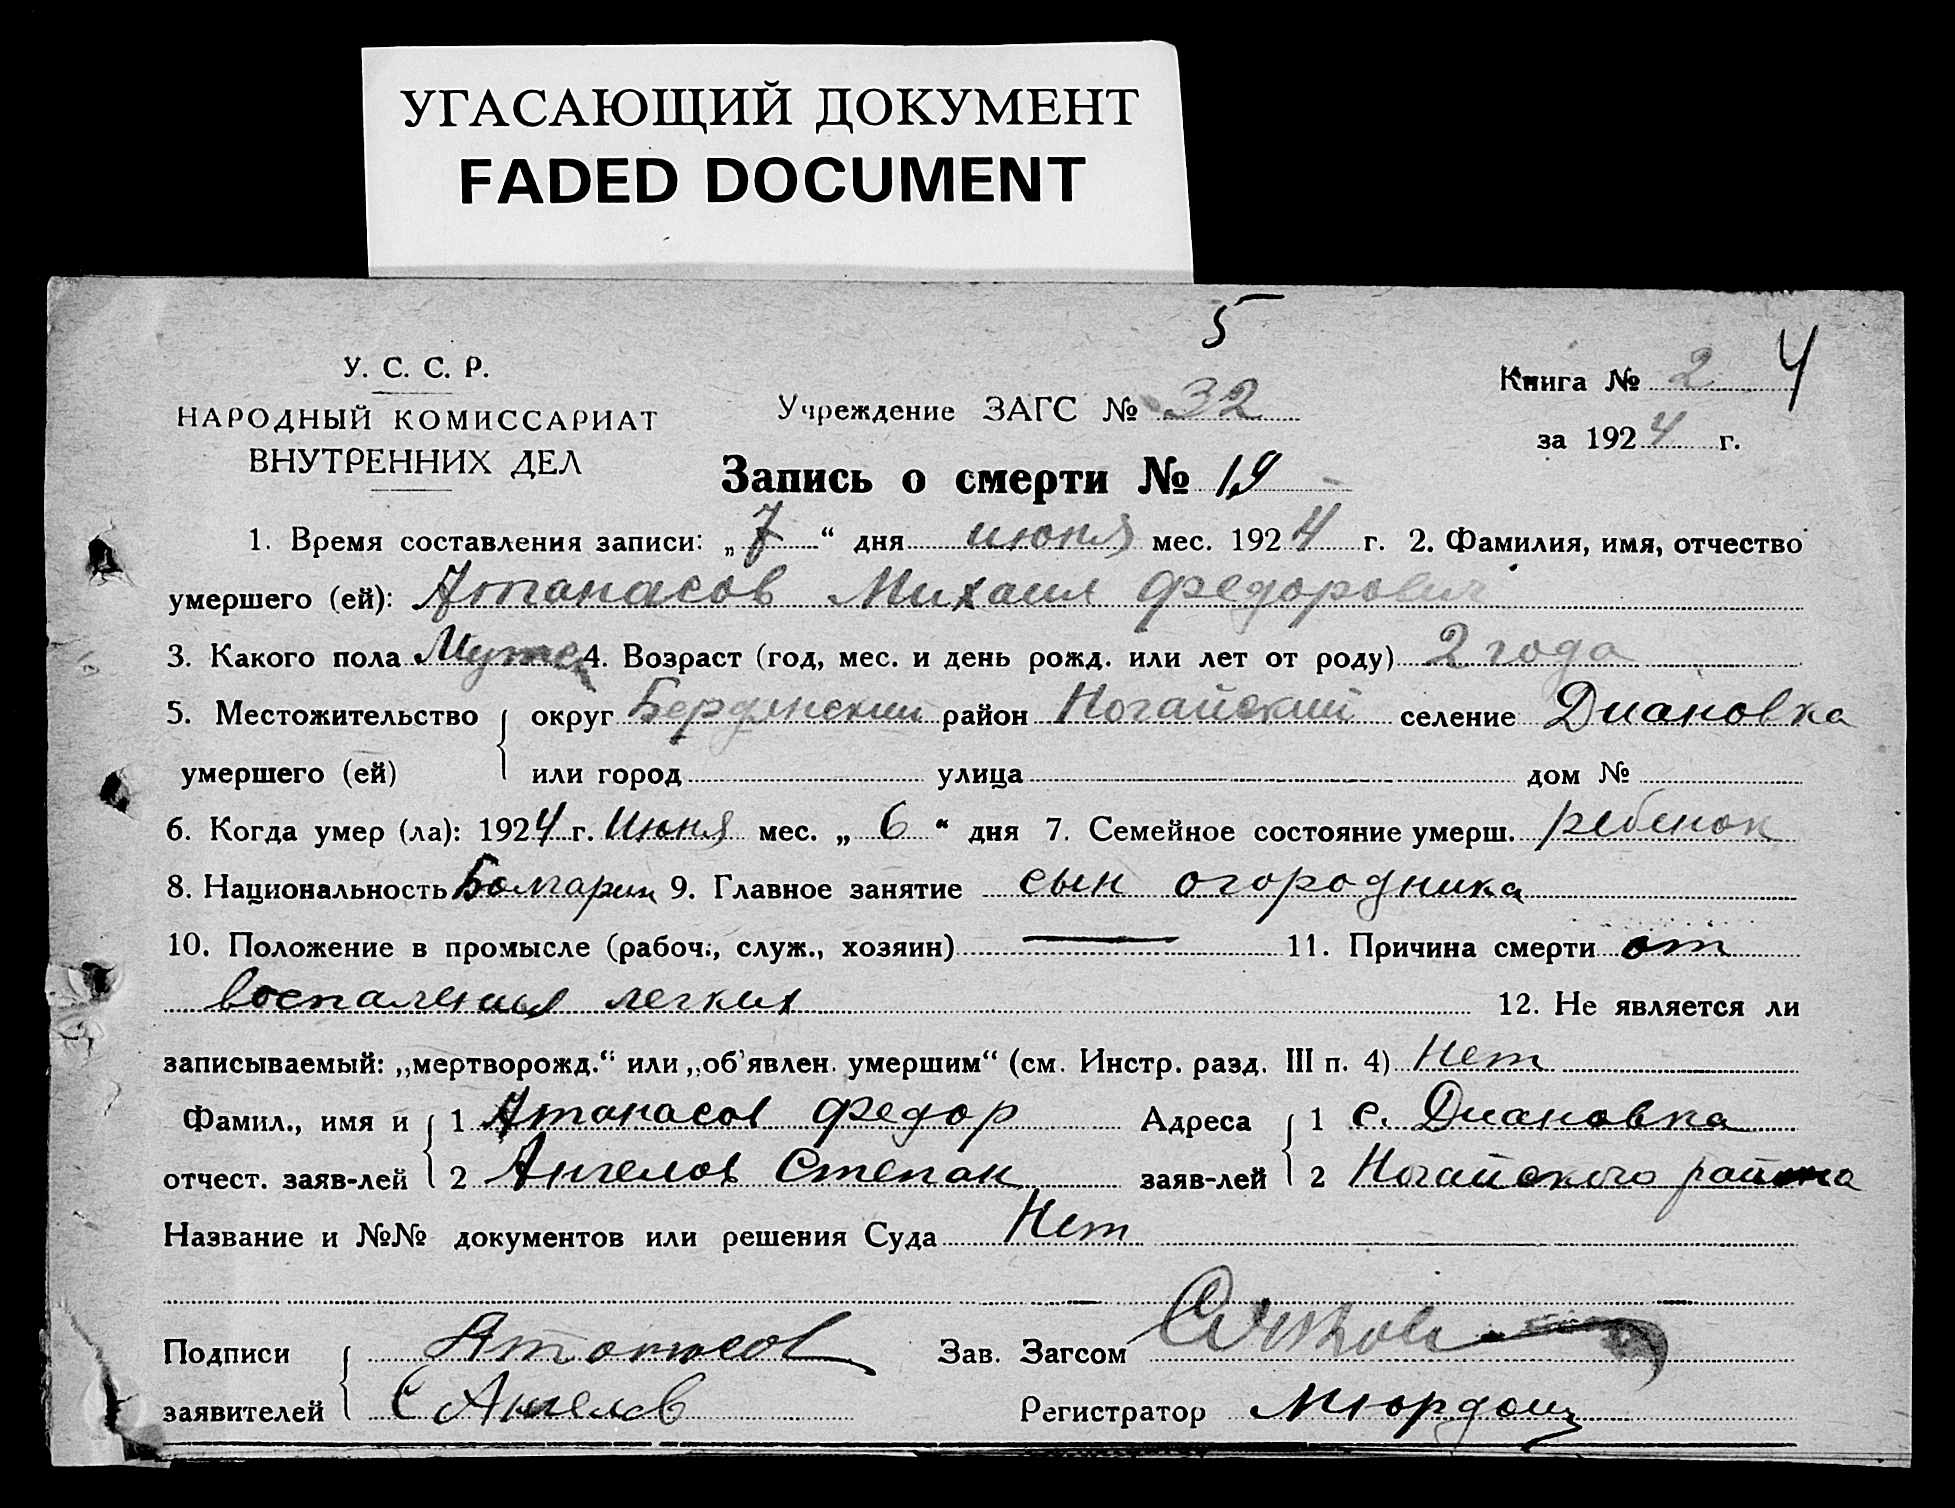 УГАСАЮЩИЙ ДОКУМЕНТ
FADED DOCUMENT
5
У. С. С. Р.
НАРОДНЫЙ КОМИССАРИАТ
ВНУТРЕННИХ ДЕЛ
Учреждение ЗАГС № 32
Книга № 2 4
за 1924 г.
Запись о смерти № 19
1. Время составления записи: „7“ дня июня мес. 1924 г. 2. Фамилия, имя, отчество
умершего (ей): Атанасов Михаил Федорович
3. Какого пола 4. Возраст (год, мес. и день рожд. или лет от роду) 2 года
5. Местожительство округ Бердянский район Ногайский селение Диановка
умершего (ей) или город улица дом №
6. Когда умер (ла): 1924 г. Июня мес. „ 6 “ дня 7. Семейное состояние умерш. ребенок
8. Национальность Болгарин 9. Главное занятие сын огородника
10. Положение в промысле (рабоч., служ., хозяин) — 11. Причина смерти от
воспаления легких 12. Не является ли
записываемый: „мертворожд.“ или „об'явлен. умершим“ (см. Инстр. разд. III п. 4) Нет
Фамил., имя и 1 Атанасов Федор Адреса 1 с. Диановка
отчест. заяв-лей 2 Ангелов Степан заяв-лей 2 Ногайского района
Название и №№ документов или решения Суда Нет
Подписи Атанасов Зав. Загсом
заявителей С Ангелов Регистратор